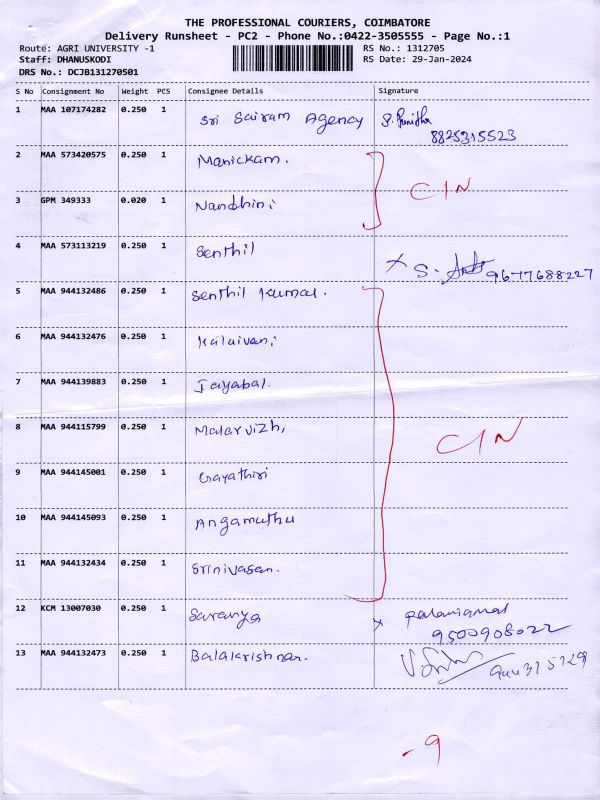 THE PROFESSIONAL COURIERS, COIMBATORE
Delivery Runsheet - PC2 - Phone No.:0422-3505555 - Page No.:1
Route: AGRI UNIVERSITY -1 RS No.: 1312705
Staff: DHANUSKODI RS Date: 29-Jan-2024
DRS No.: DCJB131270501
S No Consignment No Weight PCS Consignee Details Signature
1 MAA 107174282 0.250 1 Sri Sairam Agency S. Punitha
8825315523
2 MAA 573420575 0.250 1 Manickam.
CIN
3 GPM 349333 0.020 1 Nandhini
4 MAA 573113219 0.250 1 Senthil
x S. 9677688227
5 MAA 944132486 0.250 1 Senthil Kumar.
6 MAA 944132476 0.250 1 Kalaivani
7 MAA 944139883 0.250 1 Jayabal.
8 MAA 944115799 0.250 1 Malarvizhi
CIN
9 MAA 944145001 0.250 1 Gayathiri
10 MAA 944145093 0.250 1 Angamuthu
11 MAA 944132434 0.250 1 Srinivasan.
12 KCM 13007030 0.250 1 Saranya x palaniamal
9500908022
13 MAA 944132473 0.250 1 Balakrishnan.
-9